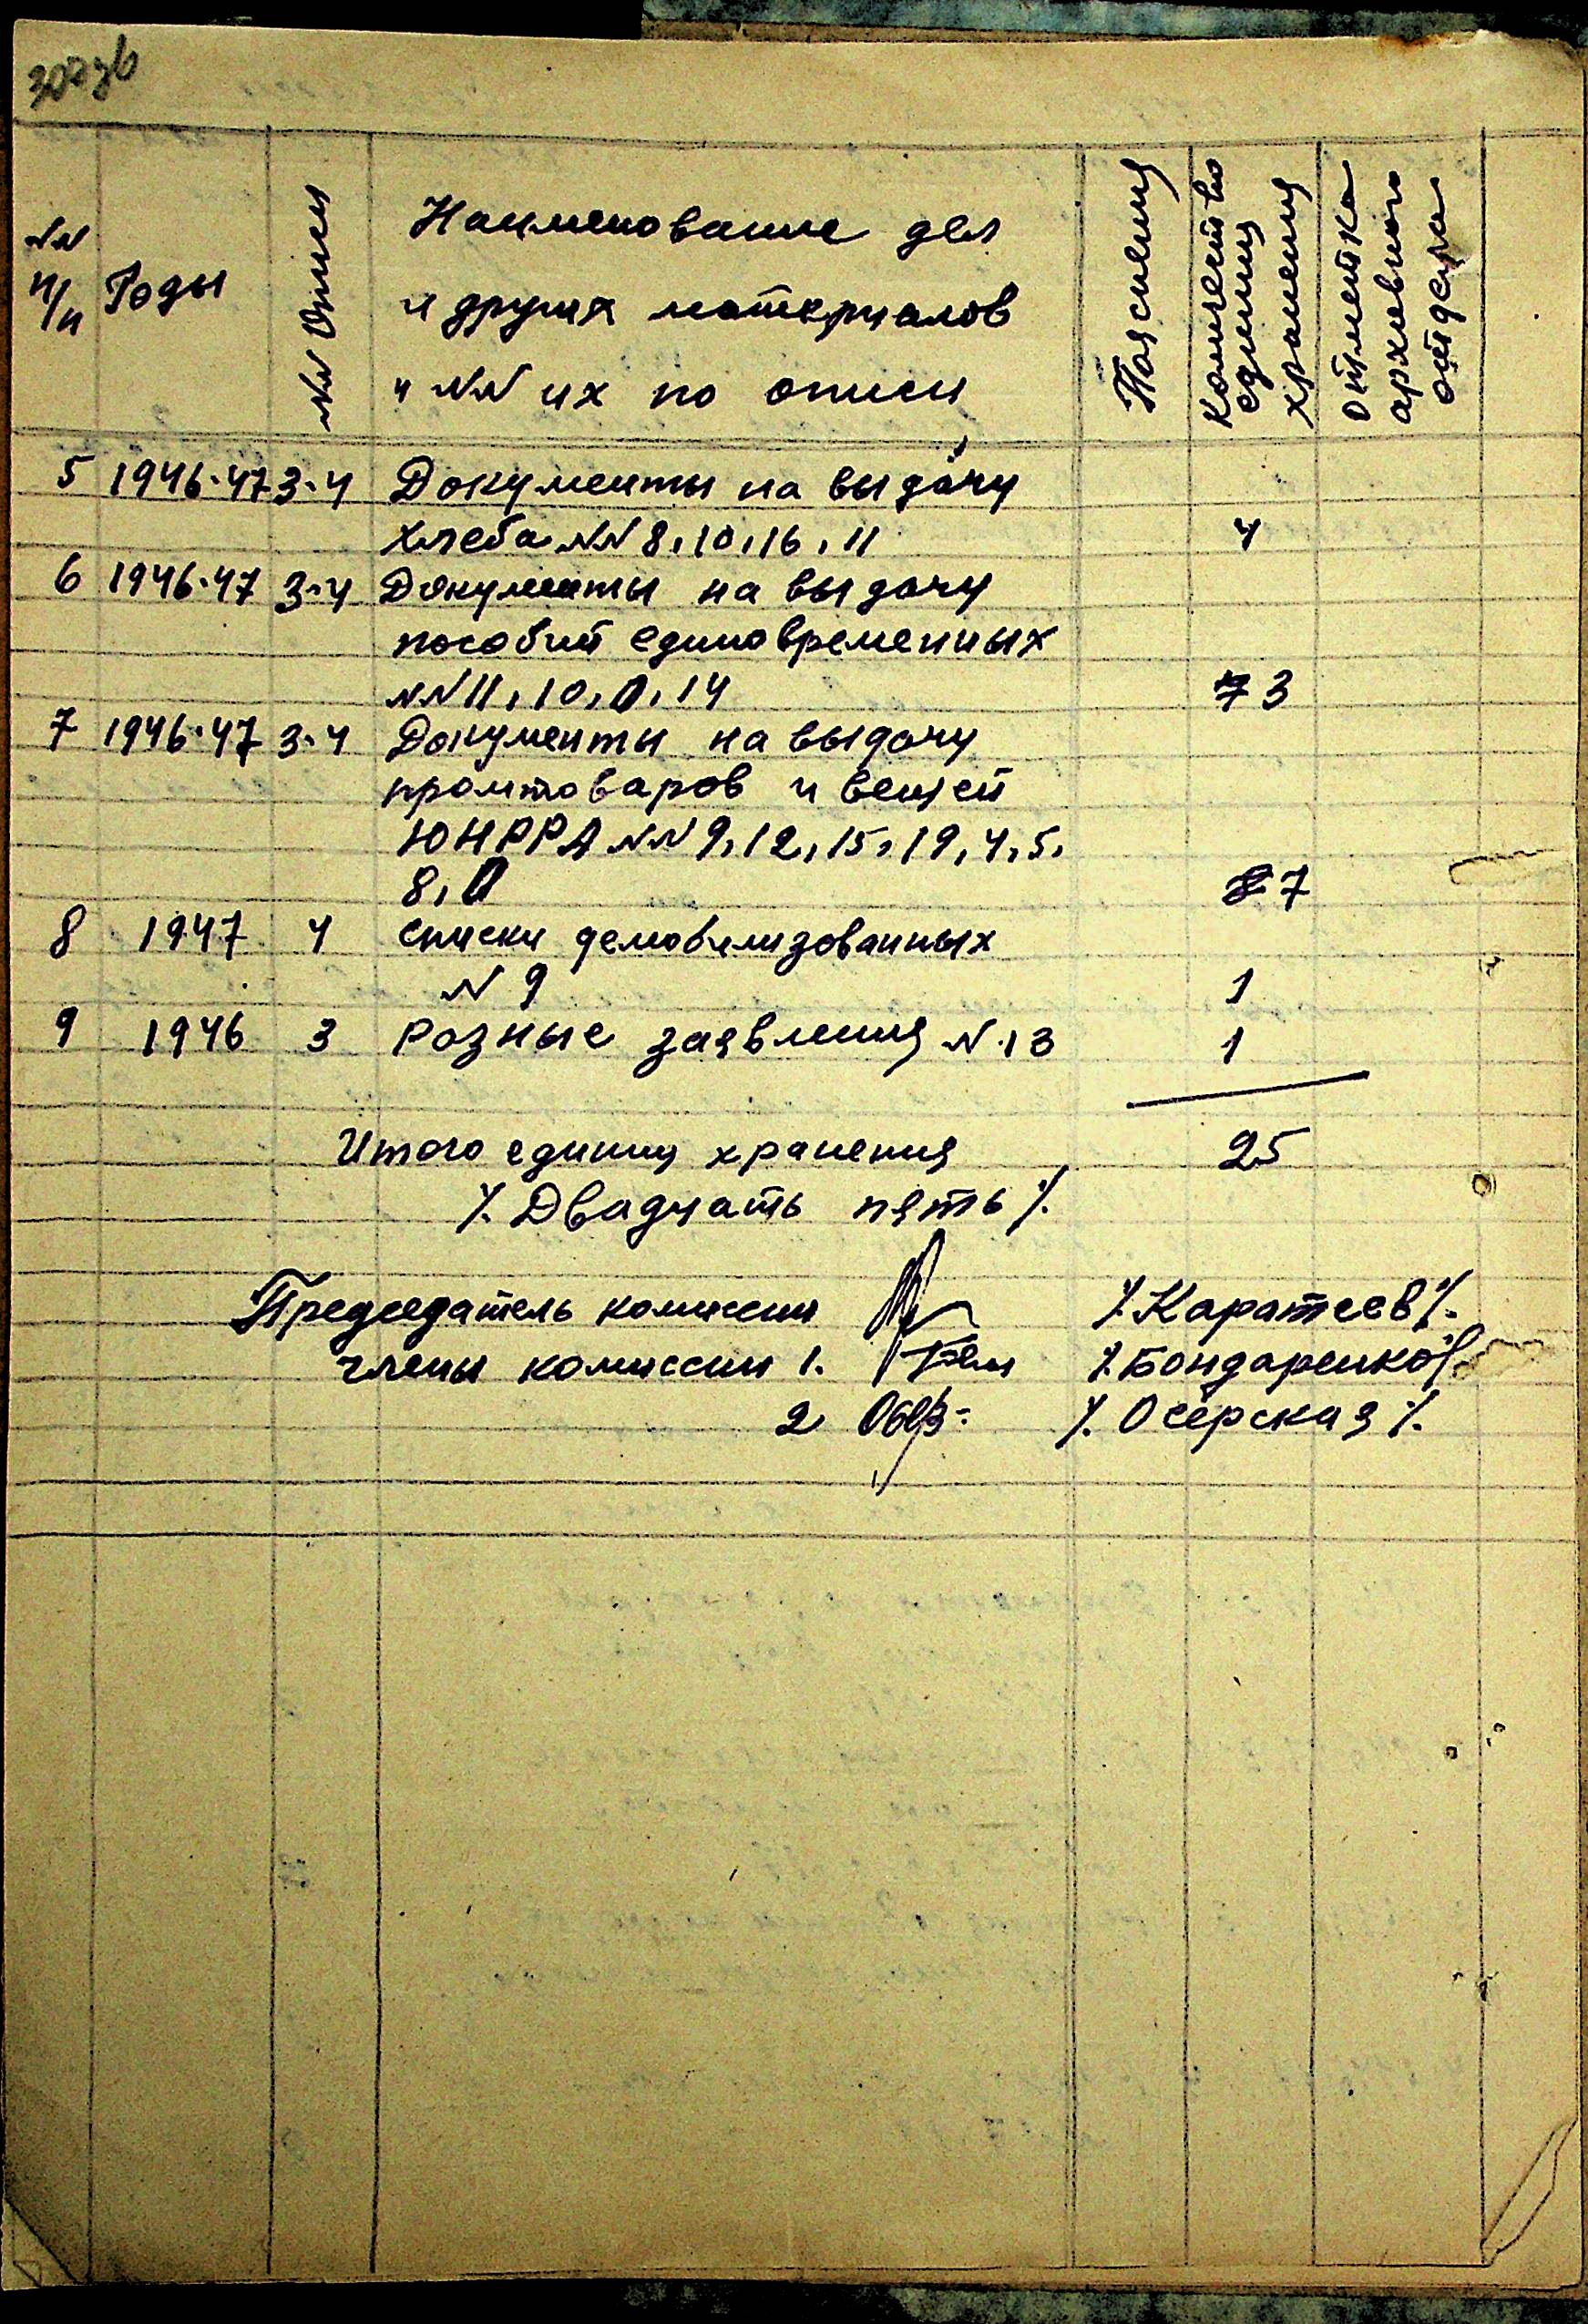 NN п/п
Годы
NN Описи
Наименование дел
и других материалов
и NN их по описи
Пояснения
Количество единиц хранения
Отметка архивного отдела
5 1946-47 3-4 Документы на выдачу
хлеба NN 8,10,16,11 4
6 1946-47 3-4 Документы на выдачу
пособий единовременных
NN 11,10,0,14 3
7 1946-47 3-4 Документы на выдачу
промтоваров и вещей
ЮНРРА NN 9,12,15,19,4,5,
8,0 7
8 1947 4 Списки демобилизованных
N 9 1
9 1946 3 Разные заявления N 13 1
Итого единиц хранения 25
/. Двадцать пять /.
Председатель комиссии /.Каратеев/.
члены комиссии 1. /.Бондаренко/.
2 /.Осёрская/.